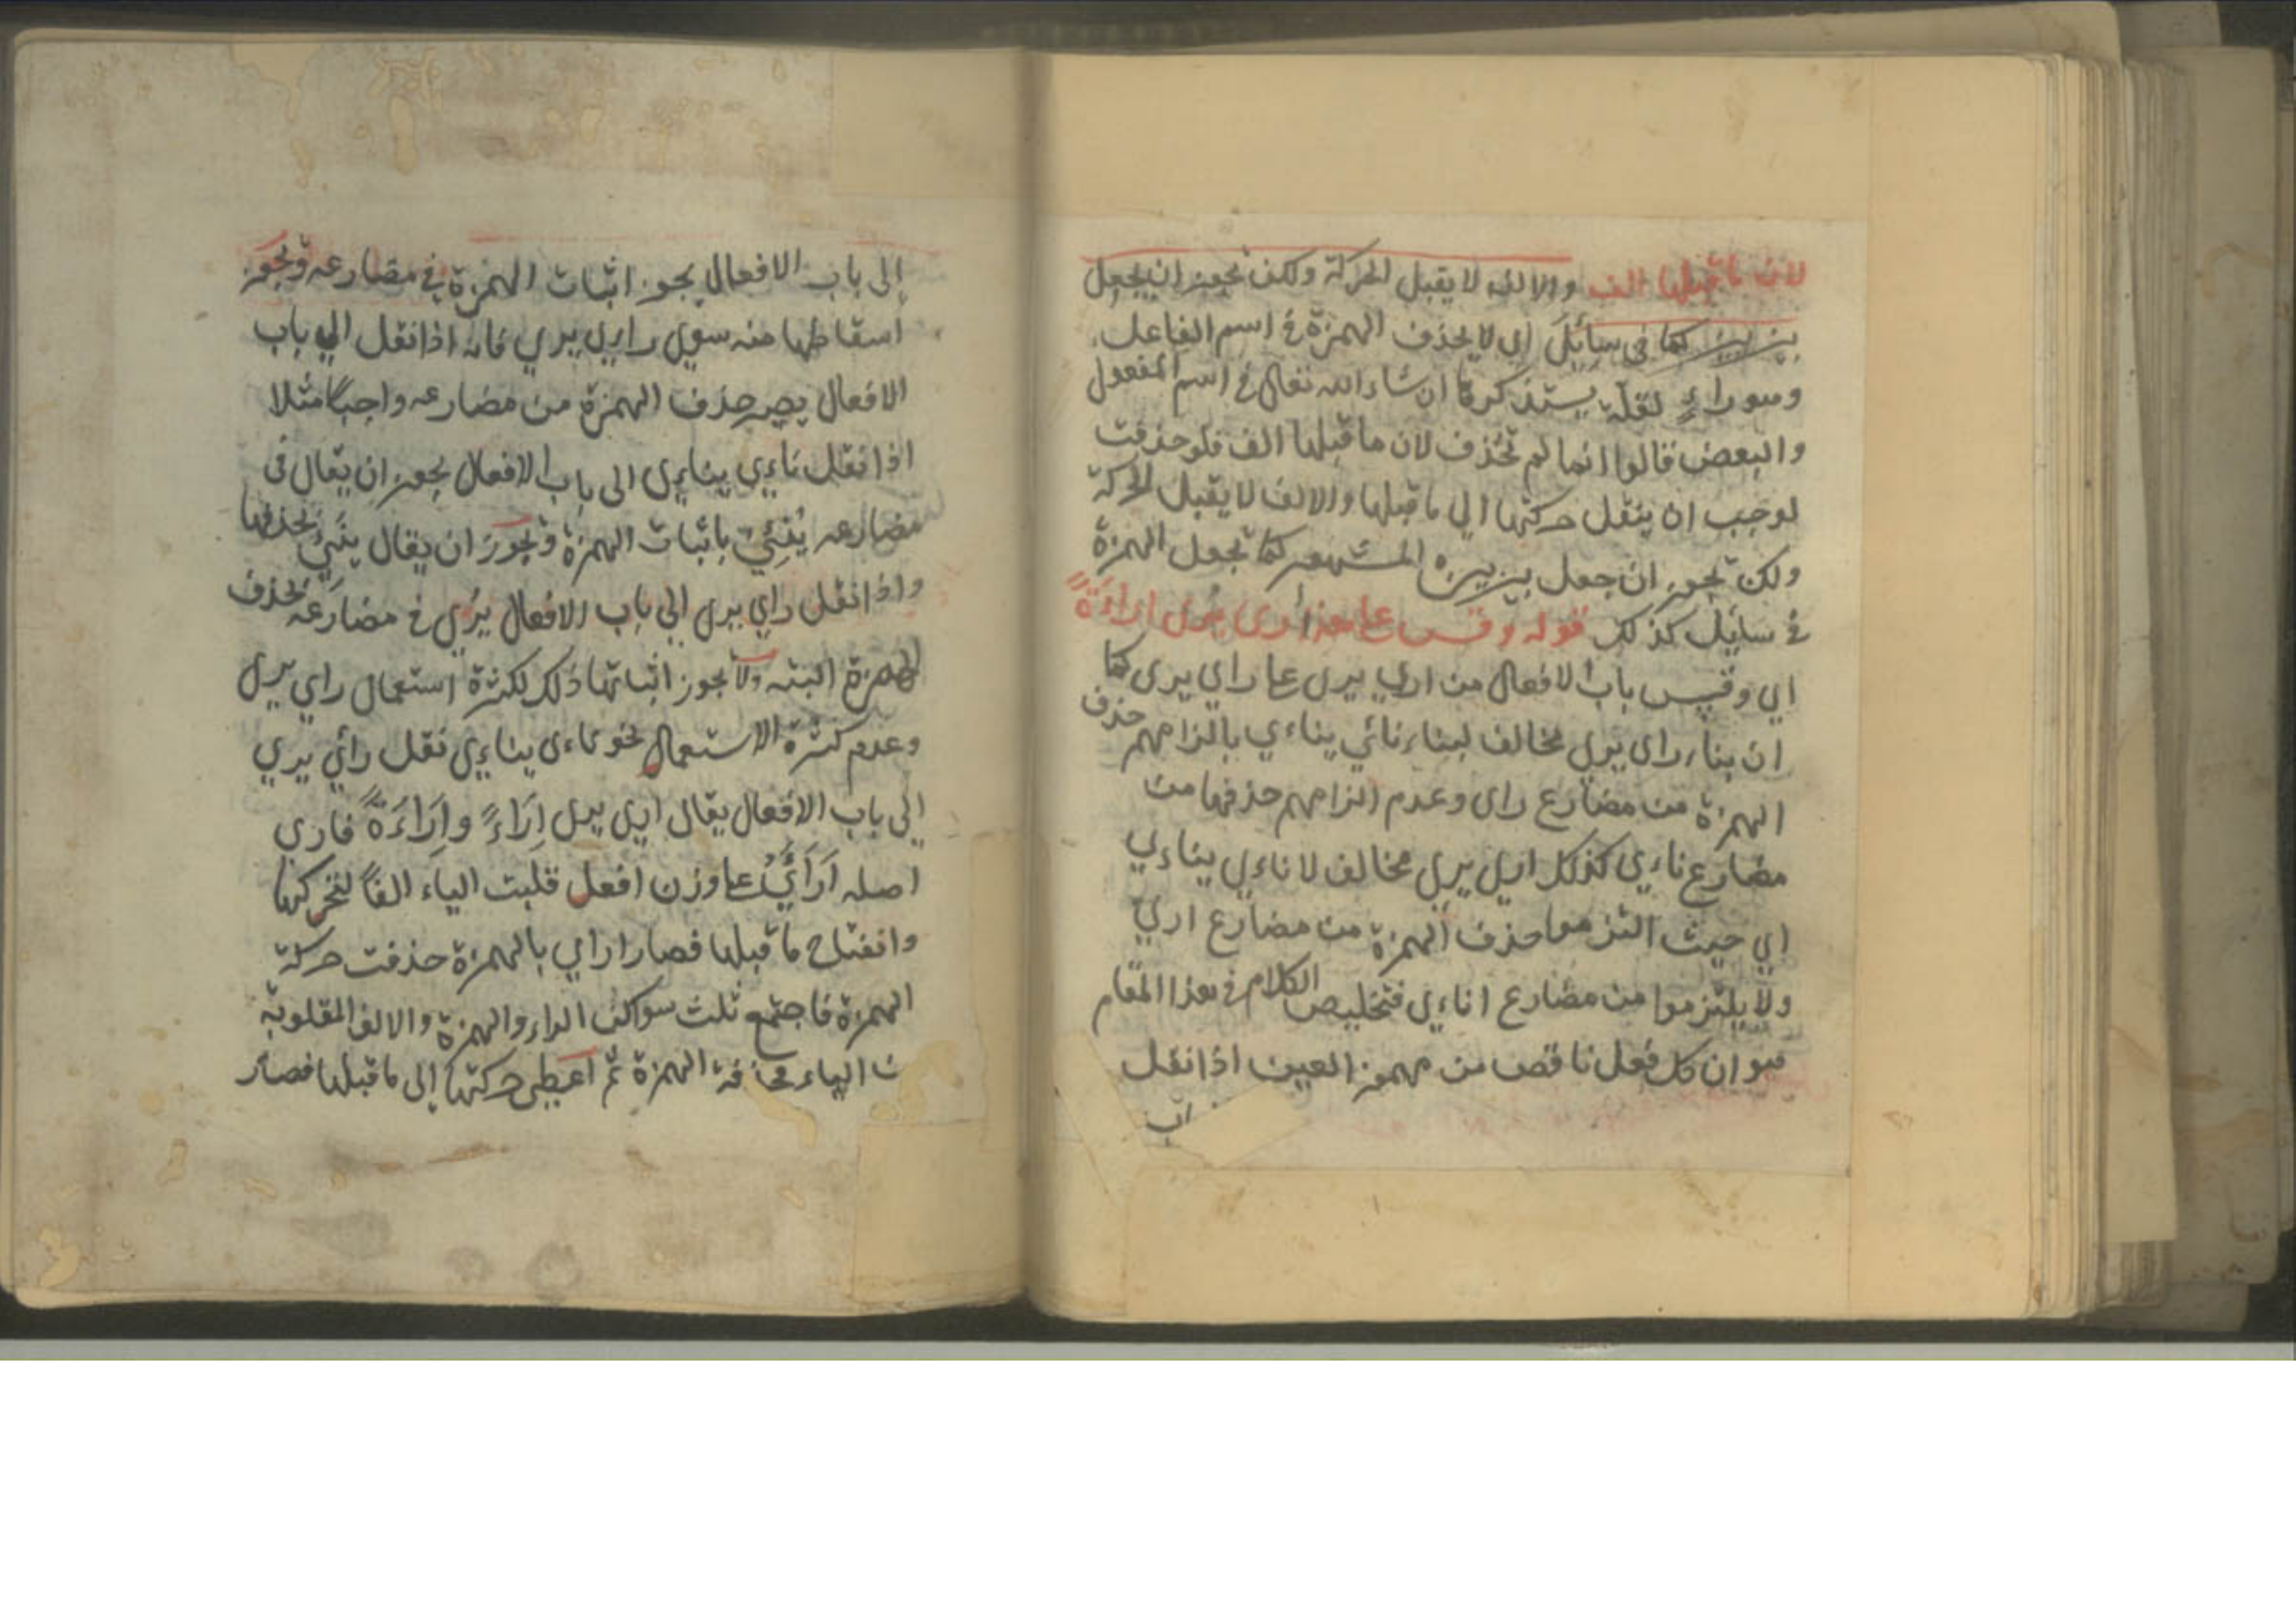 لان ما قبلها الف والالف لا يقبل الحركة ولكن يجوز ان يجعل
بين بين كما فى سائل اي لا يحذف الهمزة في اسم الفاعل
وهو راءٍ لعلة يستذكرها ان شاء الله تعالى في اسم المفعول
والبعض قالوا انما لم تحذف لان ما قبلها الف فلو حذفت
لوجب ان ينقل حركتها الي ما قبلها والالف لا يقبل الحركة
ولكن يجوز ان جعل بين بين المشهور كما تجعل الهمزة
في سايل كذلك قوله وقس على هذا ارى يرى اراءة
اي وقيس باب الافعال من اري يرى على راي يرى كما
ان بناء راى يرى مخالف لبناء نائي يناءي بالزامهم حذف
الهمزة من مضارع راى وعدم الزامهم حذفها من
مضارع ناءي كذلك ارى يري مخالف لاناءي يناءي
اي حيث التزموا حذف الهمزة من مضارع اري
ولا يلتزموا من مضارع اناءي فتخليص الكلام في هذا المقام
هو ان كل فعل ناقص من مهموز العين اذا نقل
اب
إلى باب الافعال يجوز اثبات الهمزة في مضارعه ويجوز
اسقاطها منه سوي راي يري فانه اذا نقل الي باب
الافعال يصير حذف الهمزة من مضارعه واجبًا مثلا
اذا نقل ناءي يناءي الى باب الافعال يجوز ان يقال في
مضارعه يُنْئِيُ باثبات الهمزة ويجوز ان يقال يَنِيُ بحذفها
واذا نقل راي يرى الي باب الافعال يُرِي في مضارعه بحذف
الهمزة البته ولا يجوز اثباتها ذلك لكثرة استعمال راي يرى
وعدم كثرة الاستعمال نحو ناءى يناءي نقل رأي يري
إلى باب الافعال يقال اري يرى اِرَاءً واِرَاءَةً فاري
اصله اَرْأَيُ على وزن افعل قلبت الياء الفًا لتحركها
وانفتاح ما قبلها فصار اراي بالهمزة حذفت حركة
الهمزة فاجتمع ثلث سواكن الراء والهمزة والالف المقلوبة
من الياء فحذفت الهمزة ثم اعطي حركتها إلى ما قبلها فصار